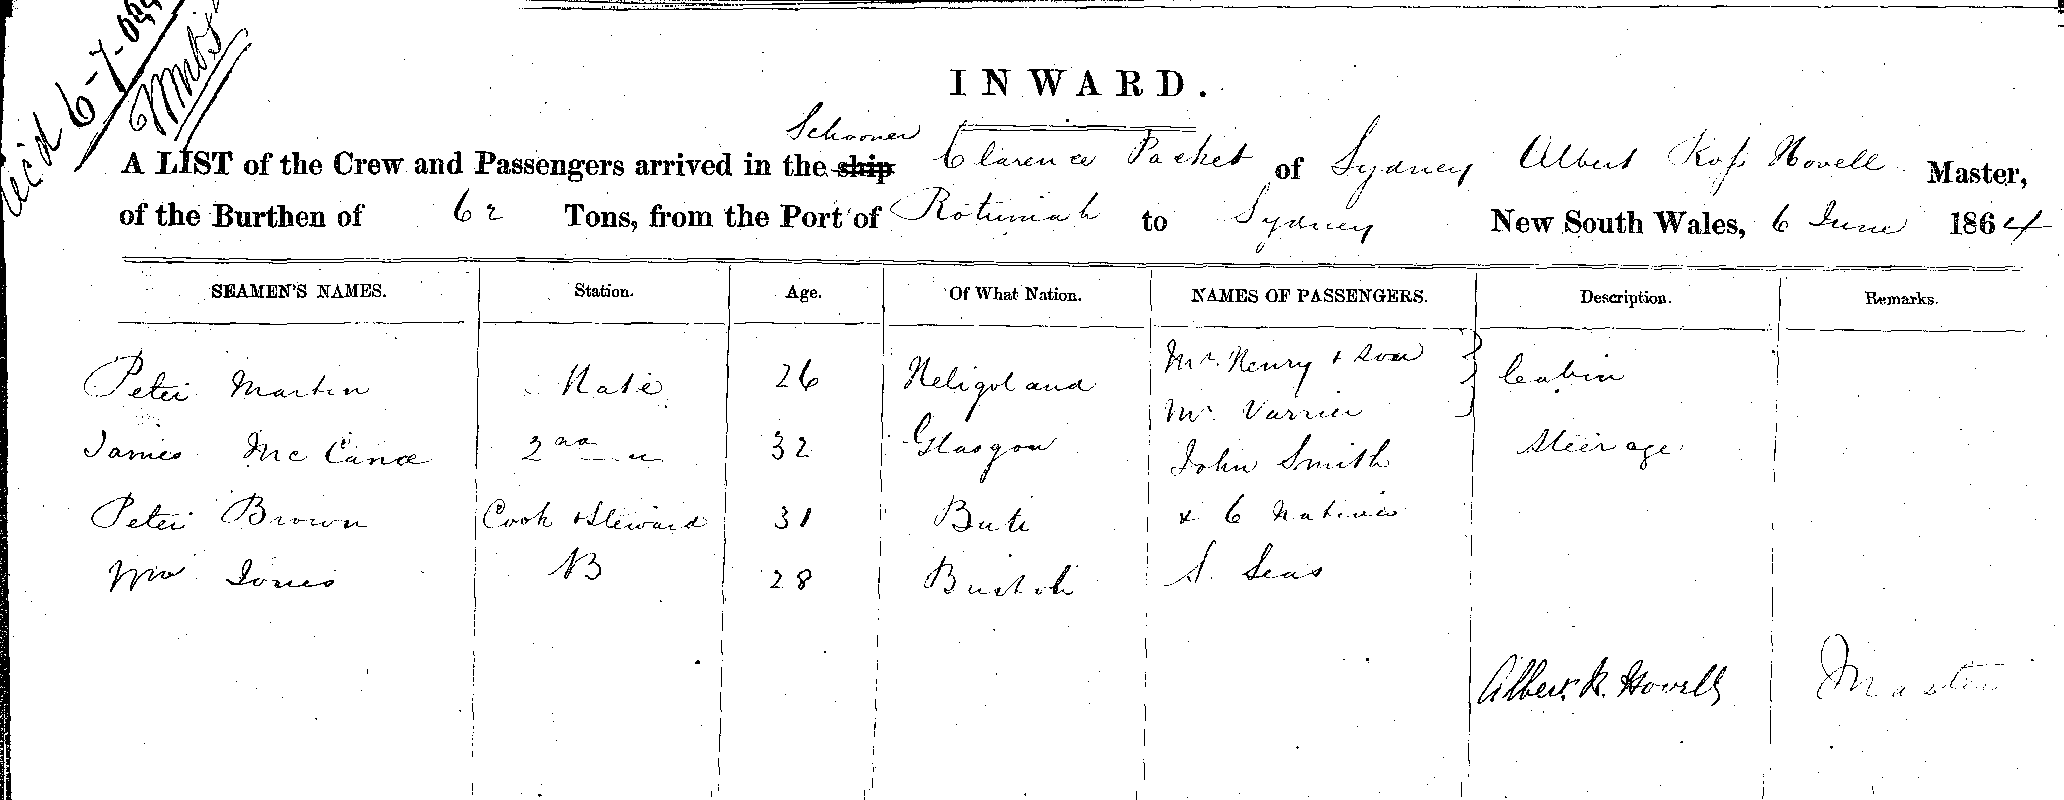 Rec'd 6-7-
INWARD.
Schooner
A LIST of the Crew and Passengers arrived in the ship Clarence Packet of Sydney Albert Rofs Hovell Master,
of the Burthen of 62 Tons, from the Port of Rotumah to Sydney New South Wales, 6 June 1864
SEAMEN'S NAMES. Station. Age. Of What Nation. NAMES OF PASSENGERS. Description. Remarks.
Mr. Henry & Son
Peter Martin Mate 26 Heligoland Cabin
Mr
James McCance 2nd " 32 Glasgow John Smith Steerage
Peter Brown Cook & Steward 31 Bute & 6 natives
Wm Jones AB 28 Bristol S. Seas
Albert R. Hovell Master